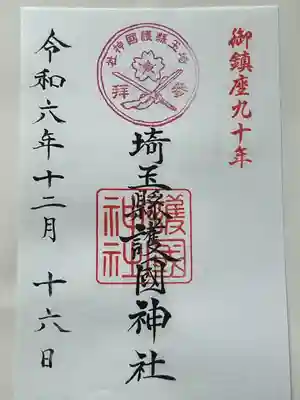 御鎮座九十年
埼玉縣護國神社
参拜
埼玉縣護國神社
護國神社
令和六年十二月十六日